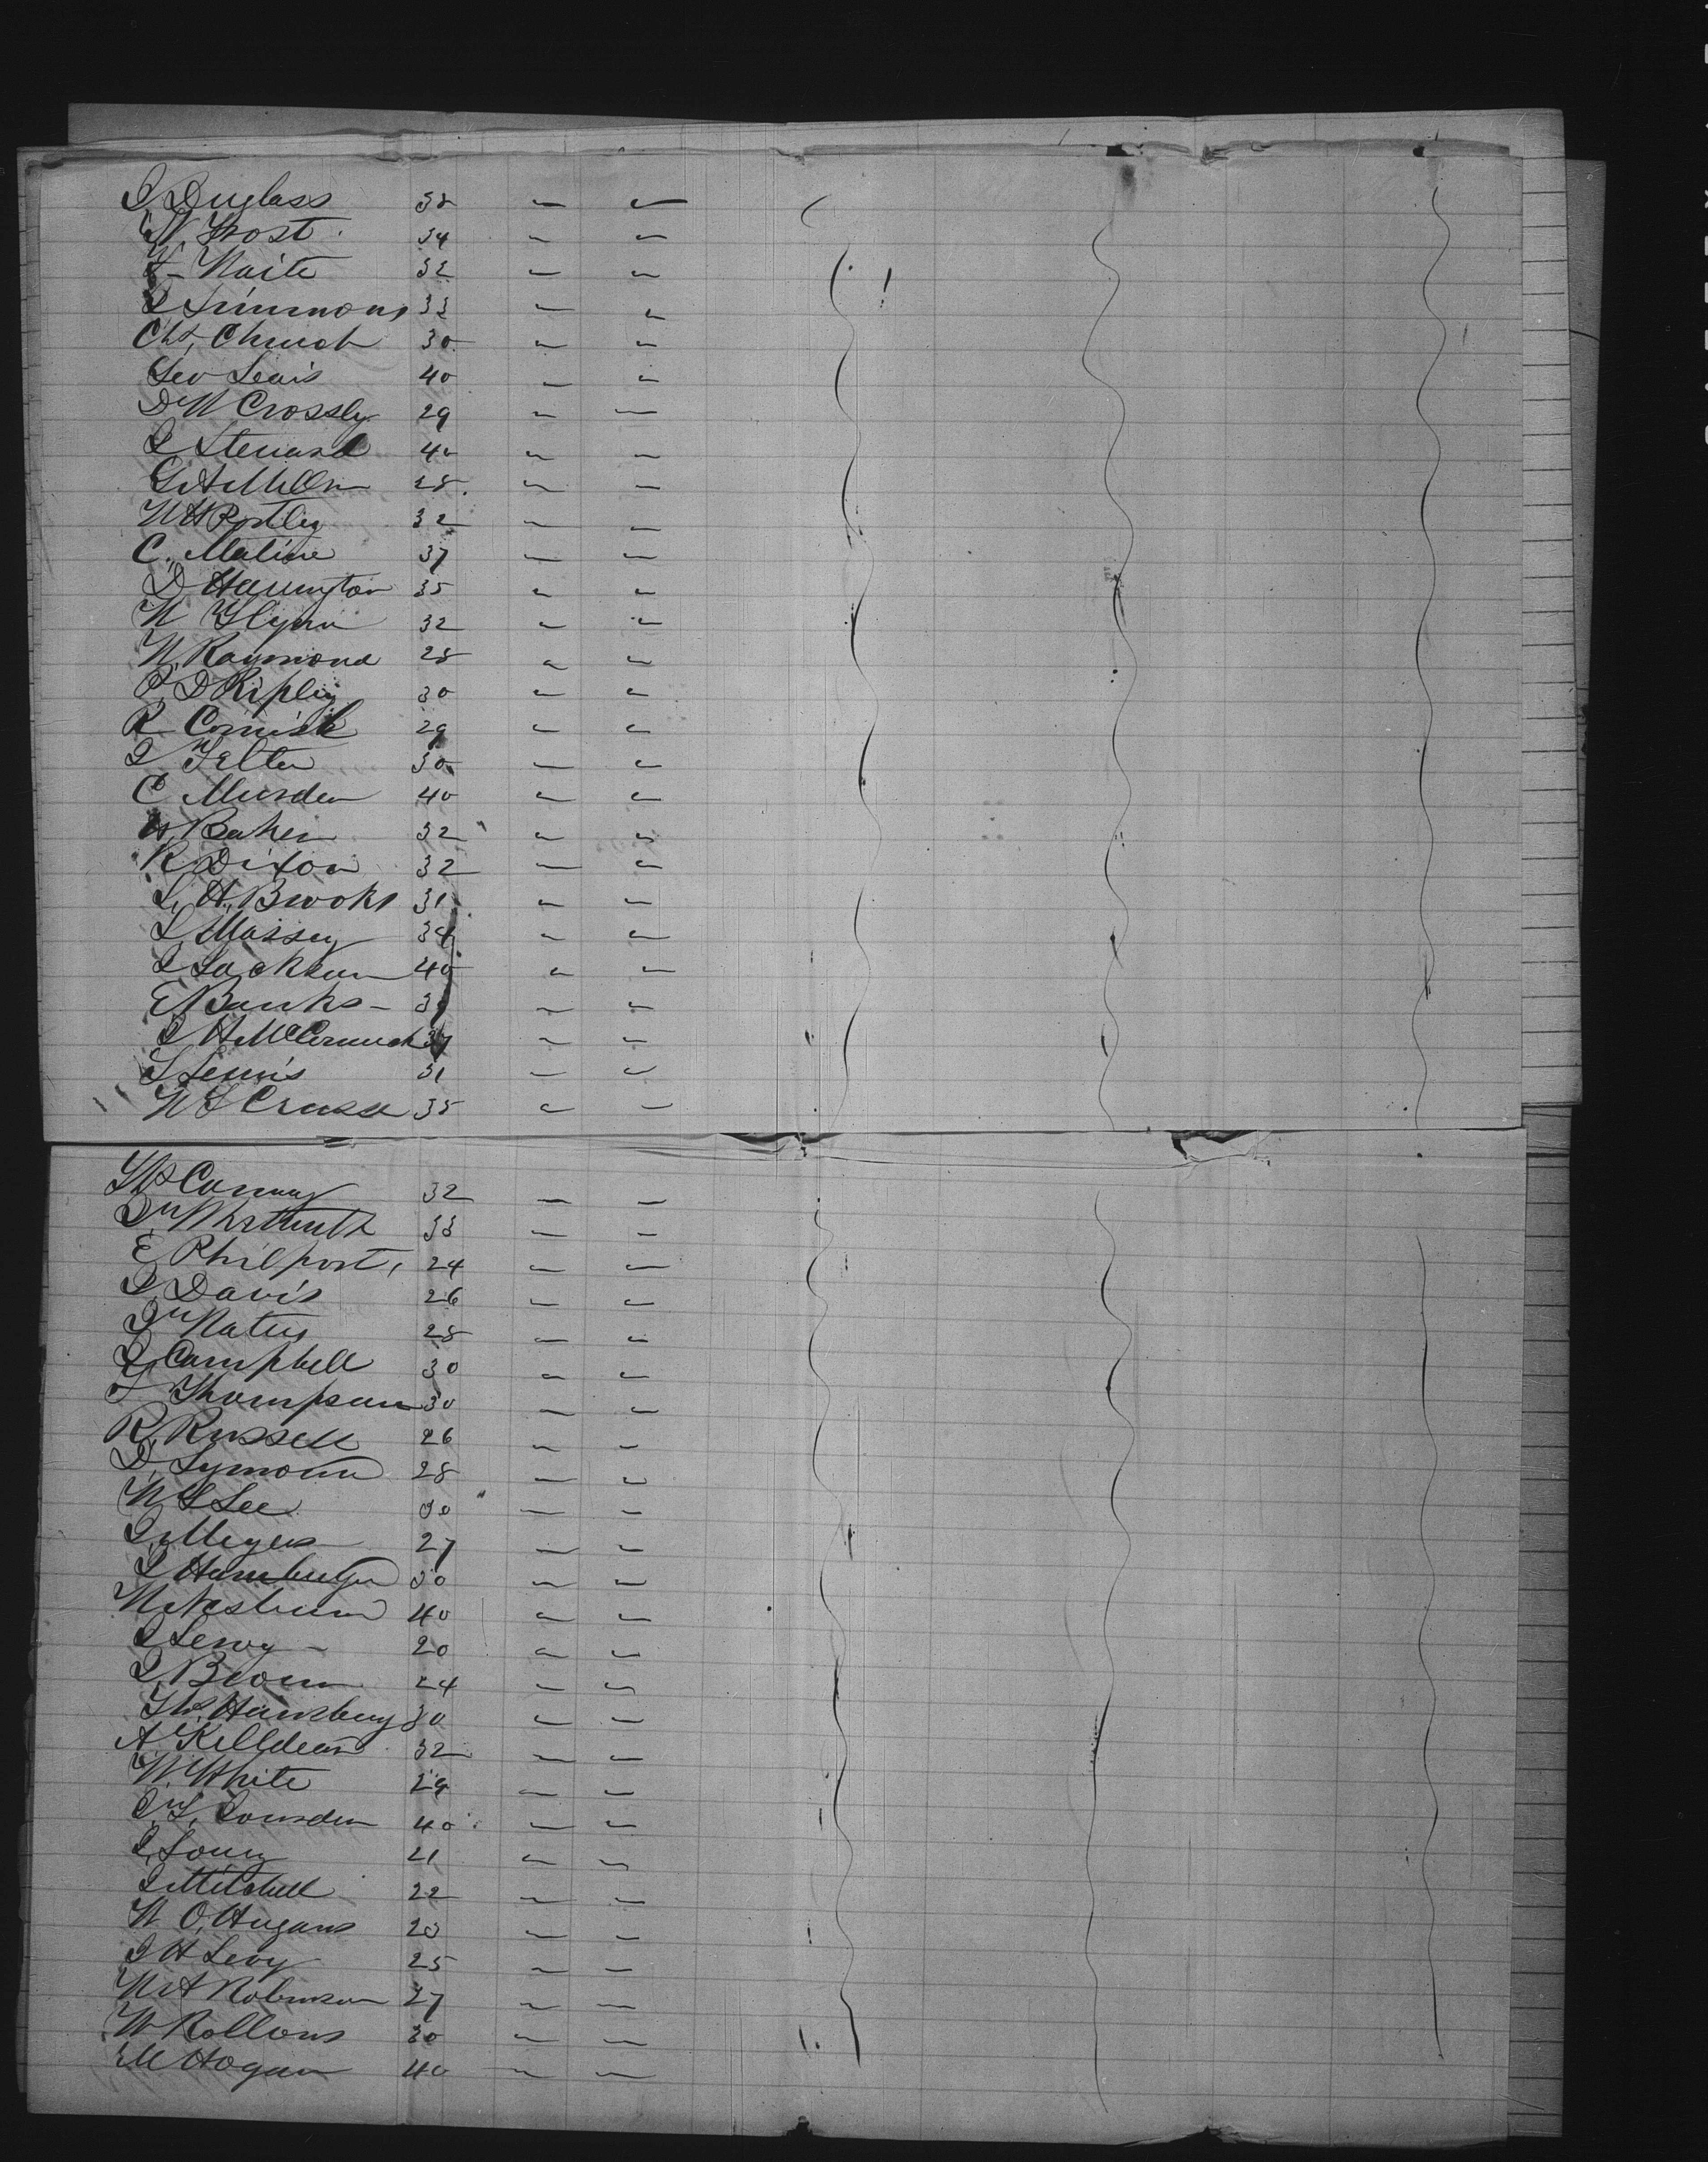 J Duglass 38 — —
W Frost 34 — —
F Waite 32 — —
J Simmons 33 — —
Chs, Church 30 — —
Geo Lewis 40 — —
D W Crossly 29 — —
J Steward 40 — —
G A Miller 28 — —
W H Postley 32 — —
C. Maline 37 — —
D Harrington 35 — —
W Flynn 32 — —
W. Raymond 28 — —
P D Ripley 30 — —
R Cornish 29 — —
J Felter 30 — —
C Mursden 40 — —
Baker 32 — —
R Dixon 32 — —
L, H, Brooks 31 — —
L Massey 34 — —
J Jackson 40 — —
E Banks — —
J H McCormick 37 — —
S Lewis 31 — —
W S Crusse 35 — —
Conway 32 — —
33 — —
E Philpost, 24 — —
J, Davis 26 — —
Jn Waters 28 — —
J Campbell 30 — —
J Thompson 30 — —
R, Russell 26 — —
D, Symonn 28 — —
W S Lee 30 — —
J, Meyers 27 — —
J Hamburger 30 — —
40 — —
J Leroy 20 — —
J, Brown 24 — —
Ths, Hainsbury 30 — —
A Killdean 32 — —
W. White 29 — —
Lounsden 40 — —
J, Loury 21 — —
J Mitchell 22 — —
W O, Hugans 20 — —
J H Levy 25 — —
W A Robinson 27 — —
W Rollons 30 — —
M Hogan 40 — —